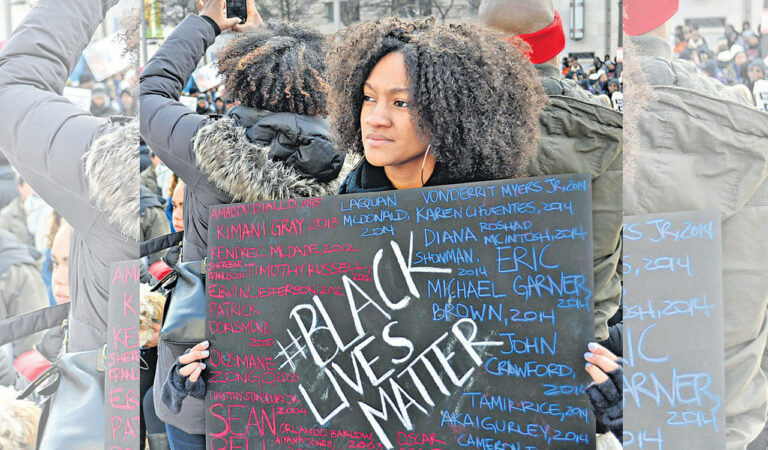 AMADOU DIALLO, 1999
KIMANI GRAY 2013
KENDREC MCDADE 2012
TIMOTHY RUSSELL, 2012
ERVIN JEFFERSON, 2012
PATRICK
DORISMOND,
2000
OUSMANE
ZONGO 2003
TIMOTHY STANSBURY JR.
2004
SEAN
BELL
ORLANDO BARLOW
AIYANA JONES,
OSCAR
#BLACK
LIVES
MATTER
LAQUAN
MCDONALD,
2014
VONDERRIT MYERS JR, 2014
KAREN CIFUENTES, 2014
DIANA
SHOWMAN,
2014
ROSHAD
MCINTOSH, 2014
ERIC
GARNER
2014
MICHAEL
BROWN, 2014
JOHN
CRAWFORD,
2014
TAMIR RICE, 2014
AKAI GURLEY, 2014
CAMERON